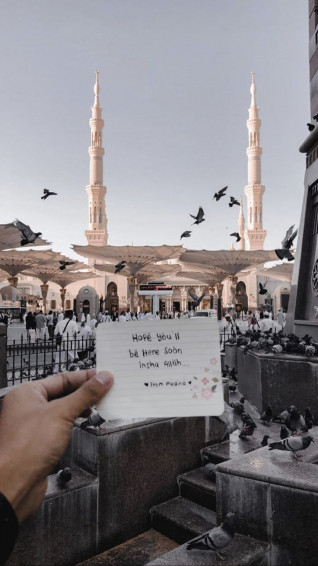 Hope you'll
be Here soon
Insha Allah...
♥ From Madina ♥